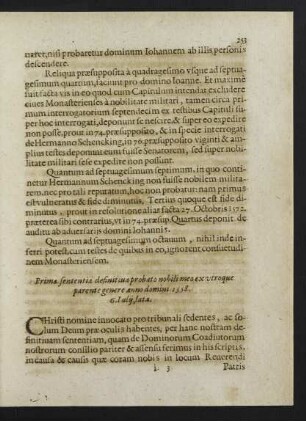 253
naret, nisi probaretur dominum Iohannem ab illis personis
descendere.
Reliqua præsupposita à quadragesimo vsque ad septua-
gesimum quartum, faciunt pro domino Ioanne. Et maxime
iuit facta vis in eo quod cum Capitulum intendat excludere
ciues Monasterienses à nobilitate militari, tamen circa primum
interrogatorium septendecim ex testibus Capituli super
hoc interrogati, deponunt se nescire, & super eo expedire
non posse, prout in 74. præsupposito, & in specie interrogati
de Hermanno Schencking, in 76. præsupposito viginti & am-
plius testes deponunt eum fuisse Senatorem, sed super nobi-
litate militari sese expedire non possunt.
Quantum ad septuagesimum septimum, in quo conti-
netur Hermannum Schencking non fuisse nobilem milita-
rem, nec pro tali reputatum, hoc non probatur: nam primus
est vulneratus & fide diminutus. Tertius quoque est fide di-
minutus, prout in resolutione alias facta 27. Octobris 1572.
præterea sibi contrarius, vt in 74. præsup. Quartus deponit de
auditu ab aduersariis domini Iohannis.
Quantum ad septuagesimum octauum, nihil inde in-
ferri potest, cum testes de quibus in eo, ignorent consuetudi-
nem Monasteriensem.
Prima sententia definitiua probatæ nobilitatis ex vtroque
parente genere anno domini 1558.
6. Iulij, lata.
CHristi nomine inuocato pro tribunali sedentes, ac so-
lum Deum præ oculis habentes, per hanc nostram de-
finitiuam sententiam, quam de Dominorum Coadiutorum
nostrorum consilio pariter & assensu ferimus in his scriptis,
in causa & causis quæ coram nobis in locum Reuerendi
l. 3 Patris